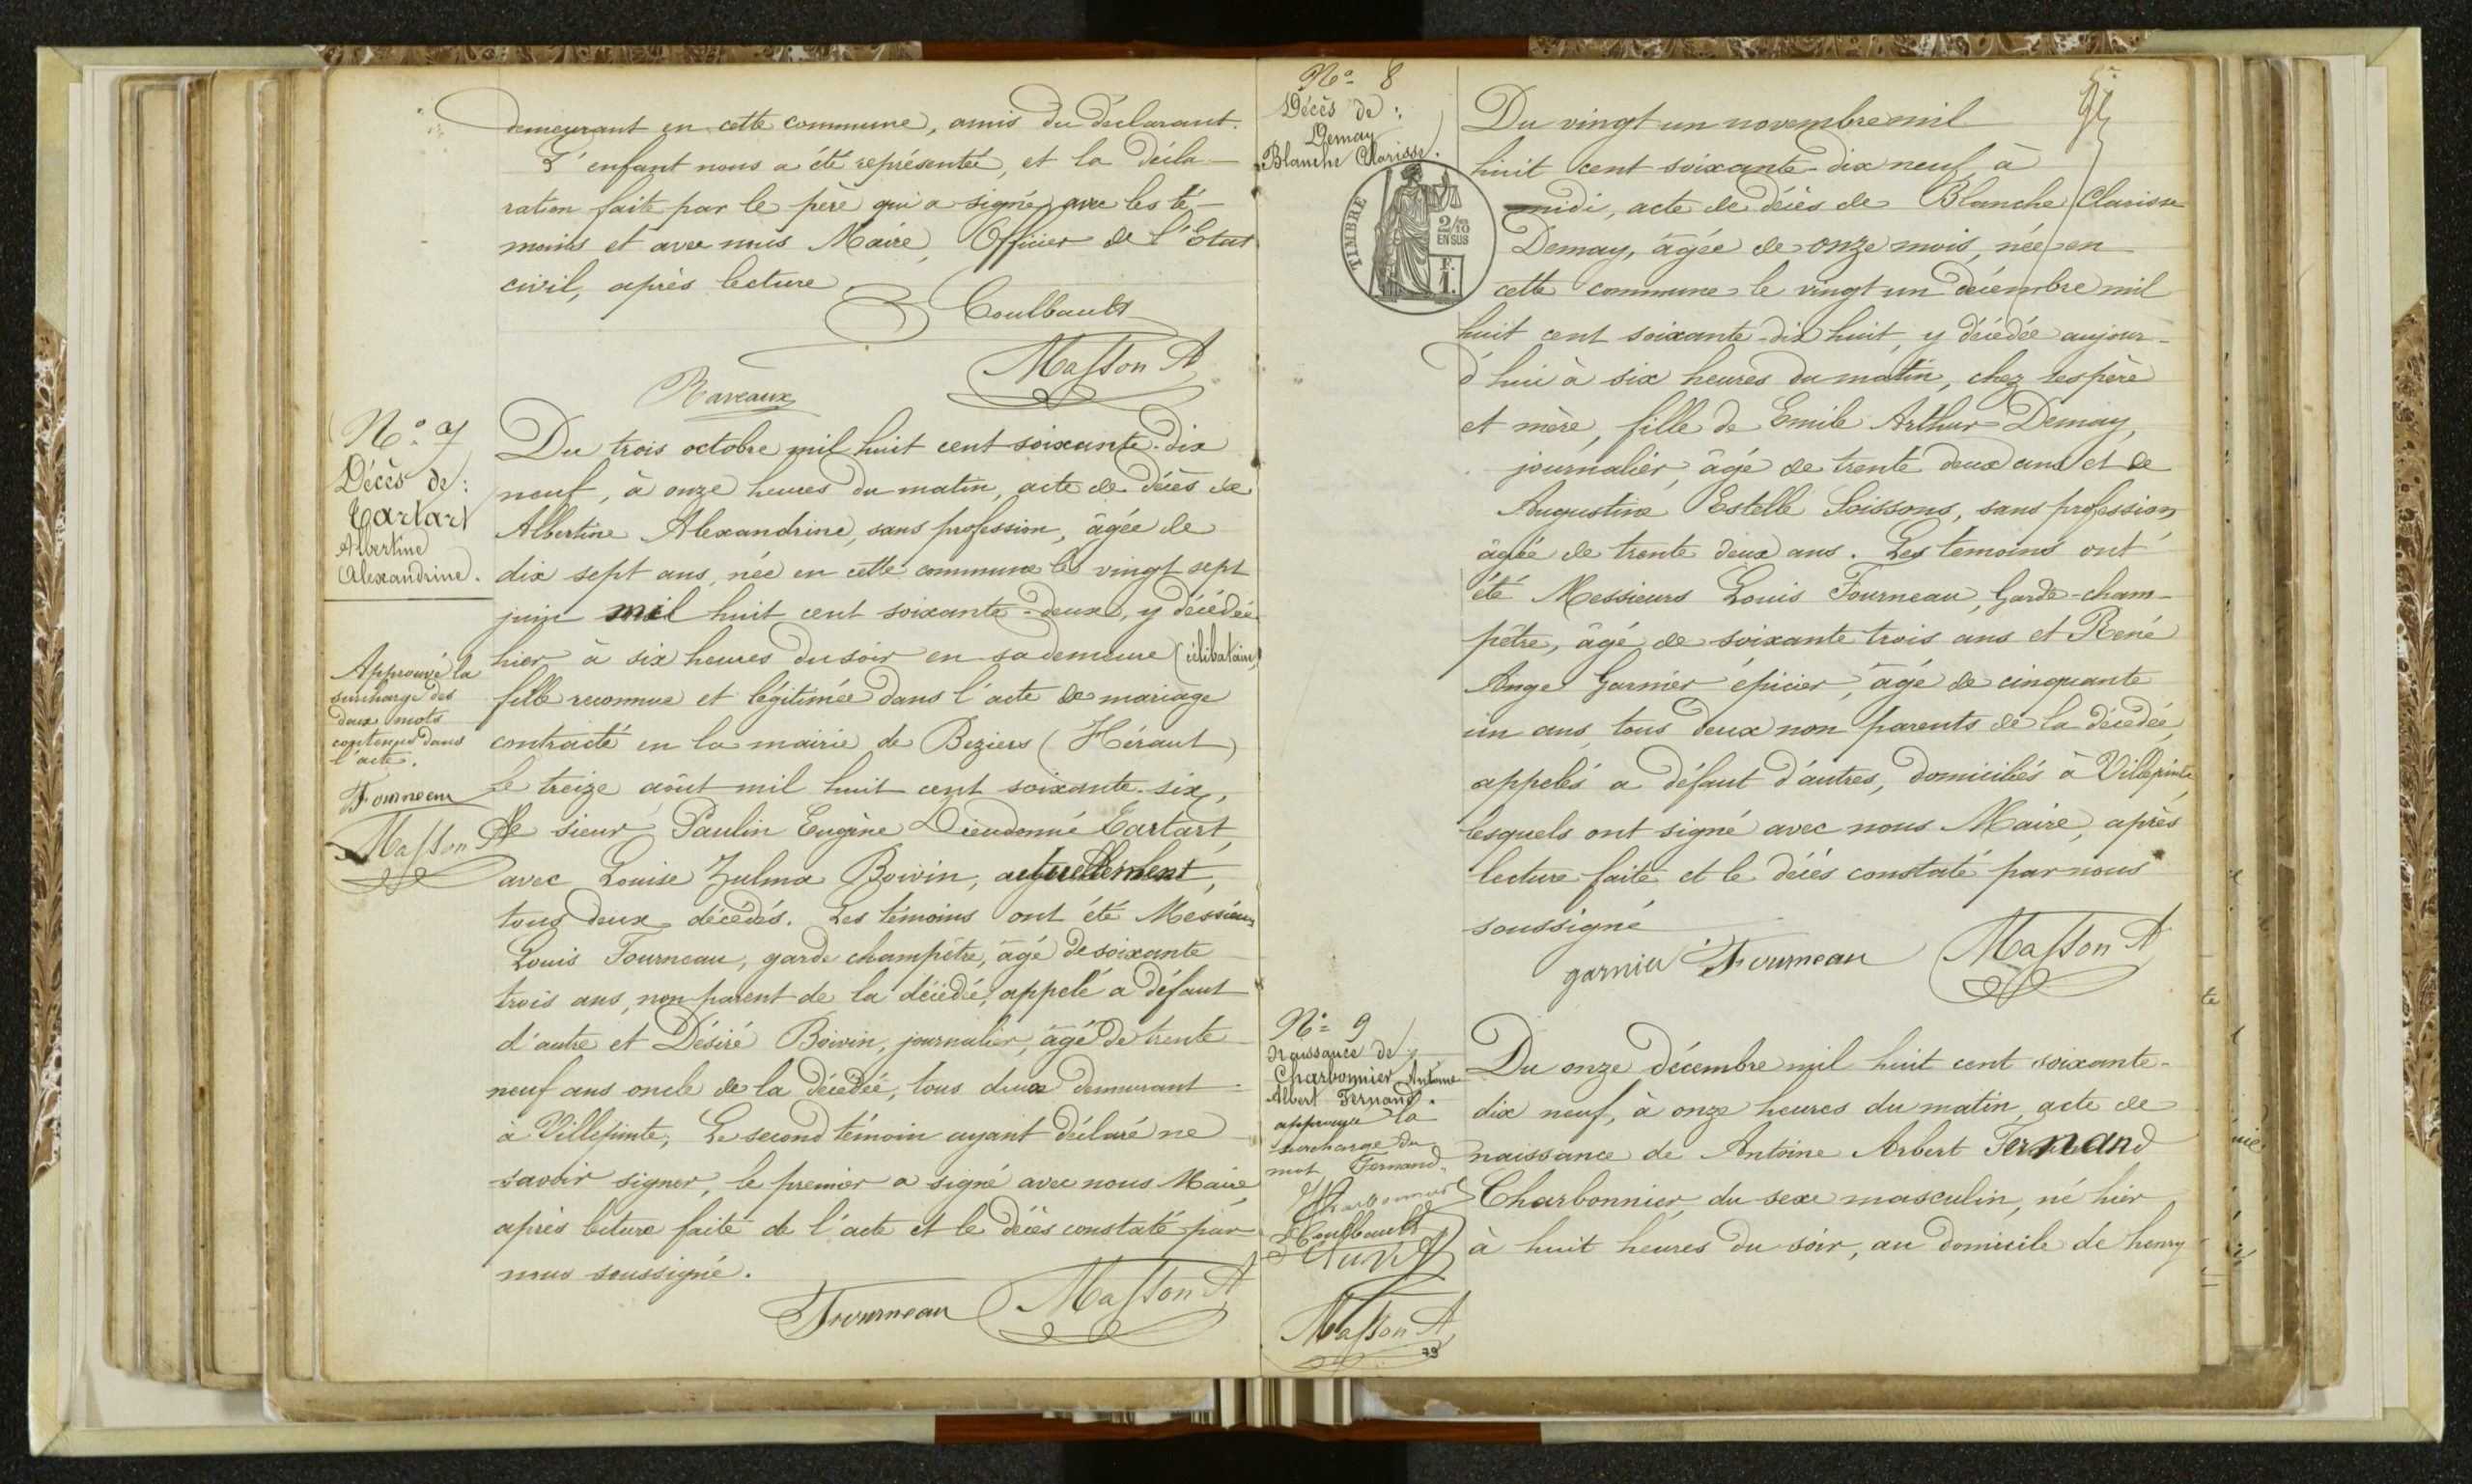 demeurant en cette commune, amis du déclarant.
L'enfant nous a été représentée, et la décla-
ration faite par le père qui a signé, avec les té-
moins et avec nous Maire, Officier de l'Etat
civil, après lecture
Coulbault
Masson A
Raveaux
N° 7
Décès de :
Tartart
Albertine
Alexandrine.
Du trois octobre mil huit cent soixante-dix
neuf, à onze heures du matin, acte de décès de
Albertine Alexandrine, sans profession, âgée de
dix sept ans, née en cette commune le vingt sept
juin mil huit cent soixante-deux, y décédée
hier à six heures du soir en sa demeure (célibataire)
fille reconnue et légitimée dans l'acte de mariage
contracté en la mairie de Beziers (Héraut)
le treize août mil huit cent soixante-six,
de sieur Paulin Eugène Dieudonné Tartart,
avec Louise Zulma Boivin, actuellement,
tous deux décédés. Les témoins ont été Messieurs
Louis Fourneau, garde champêtre, âgé de soixante
trois ans, non parent de la décédée, appelé a défaut
d'autre et Désiré Boivin, journalier, âgé de trente
neuf ans oncle de la décédée, tous deux demeurant
à Villepinte, Le second témoin ayant déclaré ne
savoir signer, le premier a signé avec nous Maire
après lecture faite de l'acte et le décès constaté par
nous soussigné.
Fourneau Masson A
Approuvé la
surcharge des
deux mots
contenus dans
l'acte.
Fourneau
Masson A
N° 8
Décès de :
Demay
Blanche Clarisse.
TIMBRE
2/10
EN SUS
F.
1.
Du vingt un novembre mil
huit cent soixante-dix neuf, à
midi, acte de décès de Blanche Clarisse
Demay, âgée de onze mois, née en
cette commune le vingt un décembre mil
huit cent soixante-dix huit, y décédée aujour-
d'hui à six heures du matin, chez ses père
et mère, fille de Emile Arthur Demay,
journalier, âgé de trente deux ans et de
Augustine Estelle Soissons, sans profession
âgée de trente deux ans. Les temoins ont
été Messieurs Louis Fourneau, Garde-cham-
pêtre, âgé de soixante trois ans et René
Ange Garnier épicier, âgé de cinquante
un ans, tous deux non parents de la décédée,
appelés a défaut d'autres, domiciliés à Villepinte,
lesquels ont signé avec nous Maire, après
lecture faite et le décès constaté par nous
soussigné
garnier Fourneau Masson A
N° 9
Naissance de
Charbonnier Antoine
Albert Fernand.
approuvé la
surcharge du
mot Fernand.
Charbonnier
Coulbault
Masson A
79
Du onze décembre mil huit cent soixante-
dix neuf, à onze heures du matin, acte de
naissance de Antoine Arbert Fernand
Charbonnier, du sexe masculin, né hier
à huit heures du soir, au domicile de henry